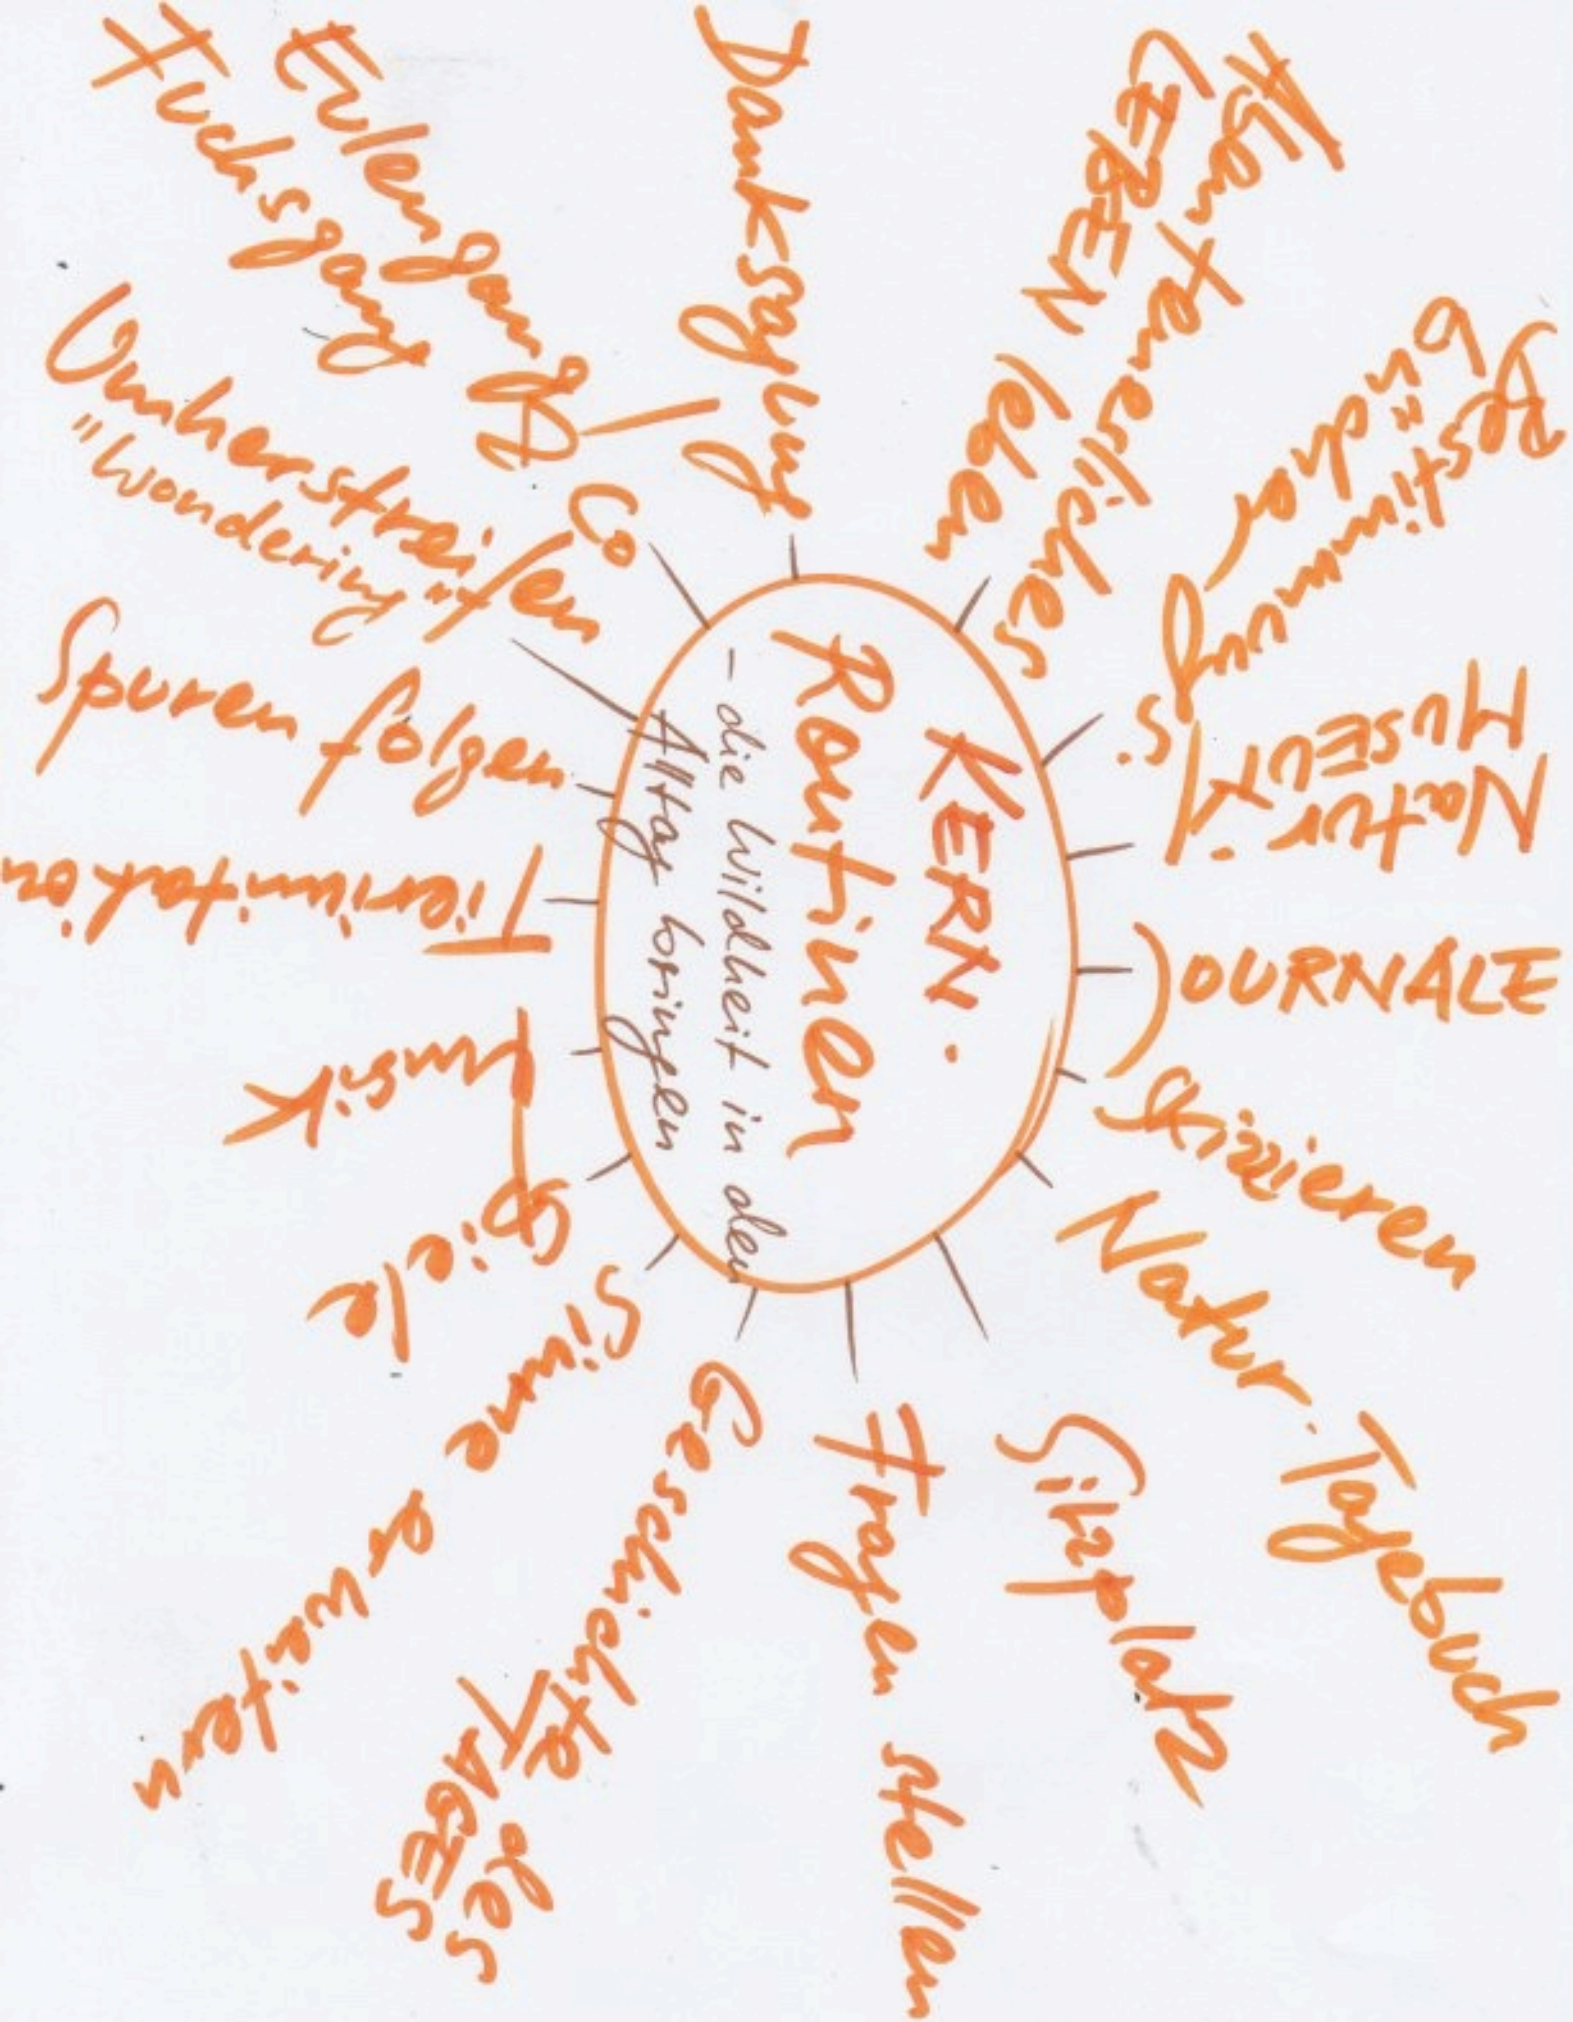 KERN-
Routinen
- die Wildheit in den
Alltag bringen
Danksagung
Abenteuerliches
LEBEN leben
Bestimmungs
bücher
Natur-
MUSEUM
JOURNALE
Skizzieren
Natur-Tagebuch
Sitzplatz
Fragen stellen
Geschichte des
TAGES
Sinne erweitern
Spiele
Musik
Tierimitation
Spuren folgen
Umherstreifen
"Wondering"
Eulengang
Fuchsgang
& Co